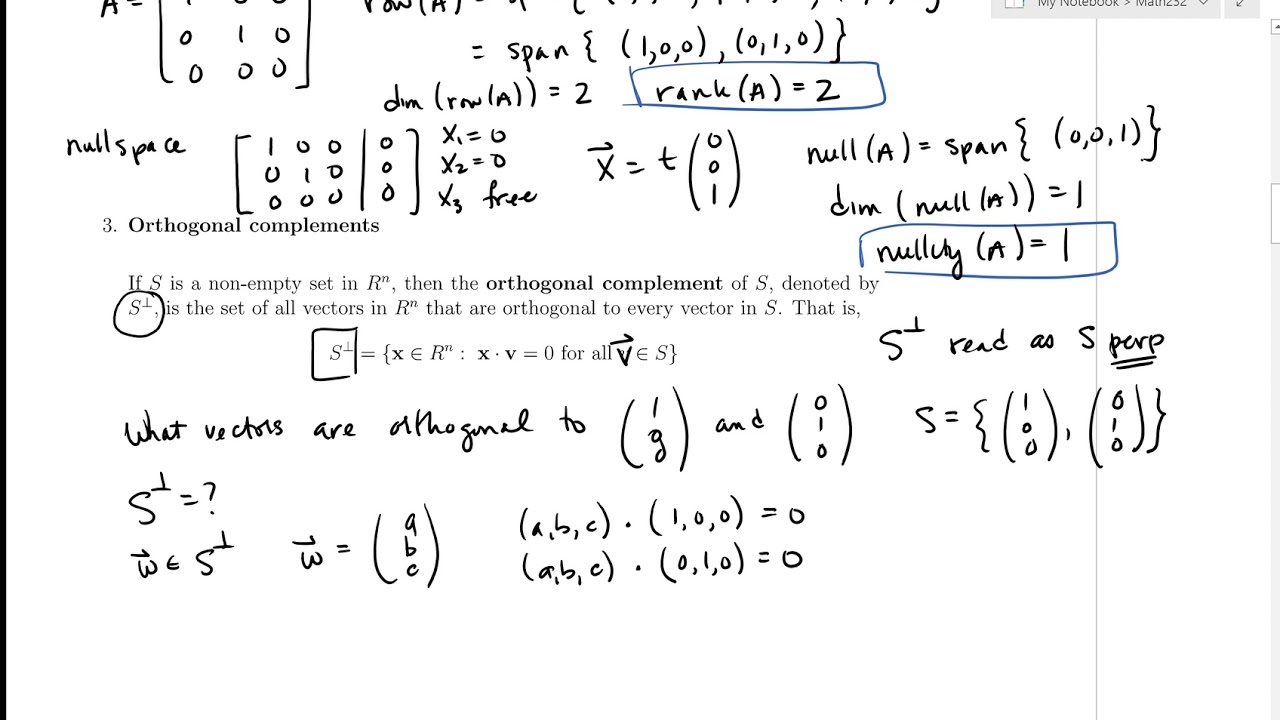 My Notebook > Math232
A =
0 1 0
0 0 0
= span { (1,0,0), (0,1,0) }
dim (row(A)) = 2 rank(A) = 2
nullspace
1 0 0 | 0
0 1 0 | 0
0 0 0 | 0
x₁ = 0
x₂ = 0
x₃ free
x⃗ = t (0 0 1)
null(A) = span { (0,0,1) }
dim (null(A)) = 1
nullity (A) = 1
3. Orthogonal complements
If S is a non-empty set in Rⁿ, then the orthogonal complement of S, denoted by
S⊥, is the set of all vectors in Rⁿ that are orthogonal to every vector in S. That is,
S⊥ = {x ∈ Rⁿ : x · v = 0 for all v⃗ ∈ S}
S⊥ read as S perp
What vectors are orthogonal to (1 0 0) and (0 1 0) S = { (1 0 0), (0 1 0) }
S⊥ = ?
w⃗ ∈ S⊥ w⃗ = (a b c)
(a,b,c) · (1,0,0) = 0
(a,b,c) · (0,1,0) = 0